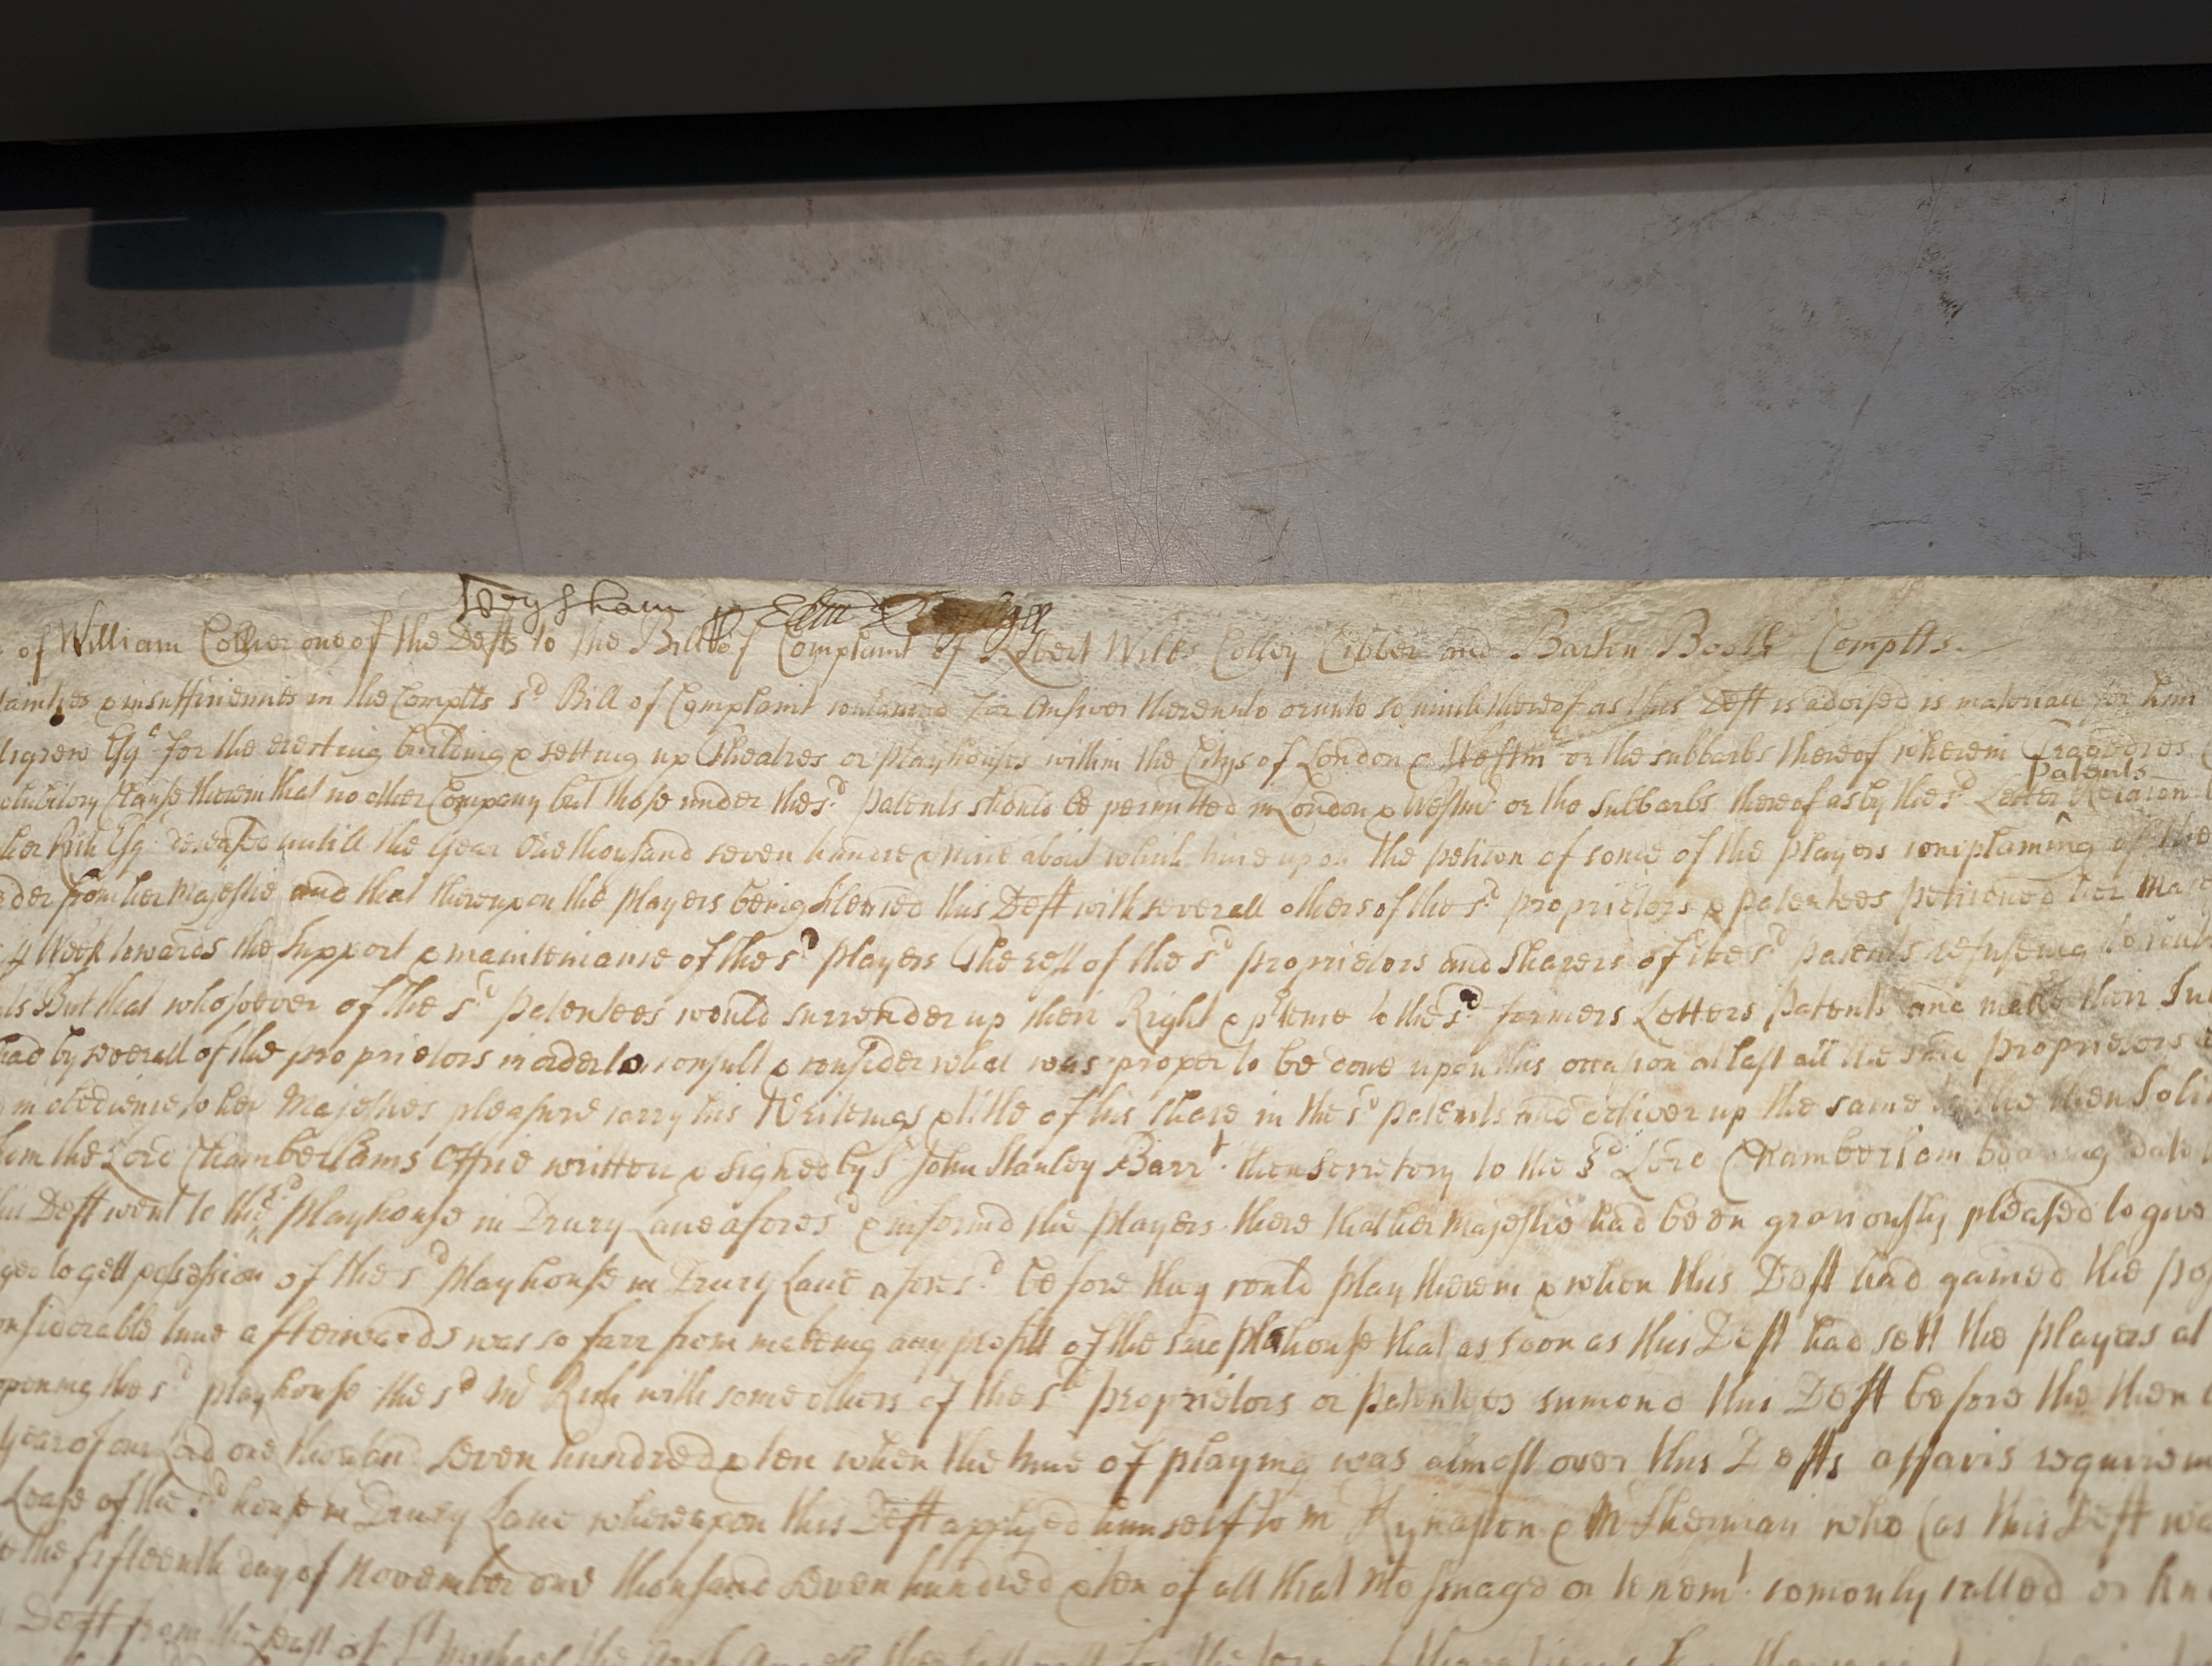 of William Collier one of the Defts to the Bill of Complaint of Robert Wilks Colley Cibber and Barton Booth Complts.
& insufficiencies in the Complts sd Bill of Complaint contained For Answer thereunto or unto so much thereof as this Deft is advised is materiall for him
Esqr for the erecting building & setting up Theatres or playhouses within the Citys of London & Westmr or the subbarbs thereof wherein Tragedies
Patents
Clause therein that no other Company but those under the sd patents should be permitted in London & Westmr or the Subbarbs thereof as by the sd Letters Relation
Rich Esqr untill the year One thousand seven hundred & nine about which time upon the petition of some of the players complaining of the
from her Majestie and that thereupon the players being silenced this Deft with severall others of the sd proprietors & patentees petitioned her
Week towards the Support & maintenance of the sd players The rest of the sd proprietors and Sharers of the sd patents refuseing to
But that whosoever of the sd patentees would surrender up their Right & to the sd formers Letters patents and make their
had by severall of the proprietors in order to consult & consider what was proper to be done upon this occasion at last all the said proprietors
in obedience to her Majesties pleasure carry his Writeings & title of his share in the sd patents and deliver up the same to the then
from the Lord Chamberlains Office written & signed by Sr John Stanley Barrt. then Secretary to the sd Lord Chamberlain bearing date
this Deft went to the sd playhouse in Drury Lane aforesd & informd the players there that her Majestie had been graciously pleased to give
to gett possession of the sd playhouse in Drury Lane aforesd. before they could play therein & when this Deft had gained the
considerable time afterwards was so farr from makeing any profitt of the said plahouse that as soon as this Deft had sett the players at
opening the sd playhouse the sd Mr Rich with some others of the sd proprietors or patentees sumond this Deft before the then
year of our Lord one thousand seven hundred & ten when the time of playing was almost over this Defts affairs
Lease of the sd house in Drury Lane whereupon this Deft applyed himself to Mr Kynaston & Mr Sherman who (as this Deft
the fifteenth day of November one thousand seven hundred & ten of all that Messuage or tenemt. comonly called or
Deft from the feast of St Michael the